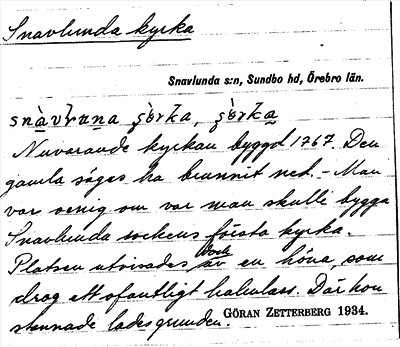 Snavlunda kyrka
Snavlunda s:n, Sundbo hd, Örebro län.
Nuvarande kyrkan byggd 1767. Den
gamla säges ha brunnit ned. – Man
var oenig om var man skulle bygga
Snavlunda sockens första kyrka.
Platsen utvisades dock av en höna, som
drog ett ofantligt halmlass. Där hon
stannade lades grunden.
GÖRAN ZETTERBERG 1934.